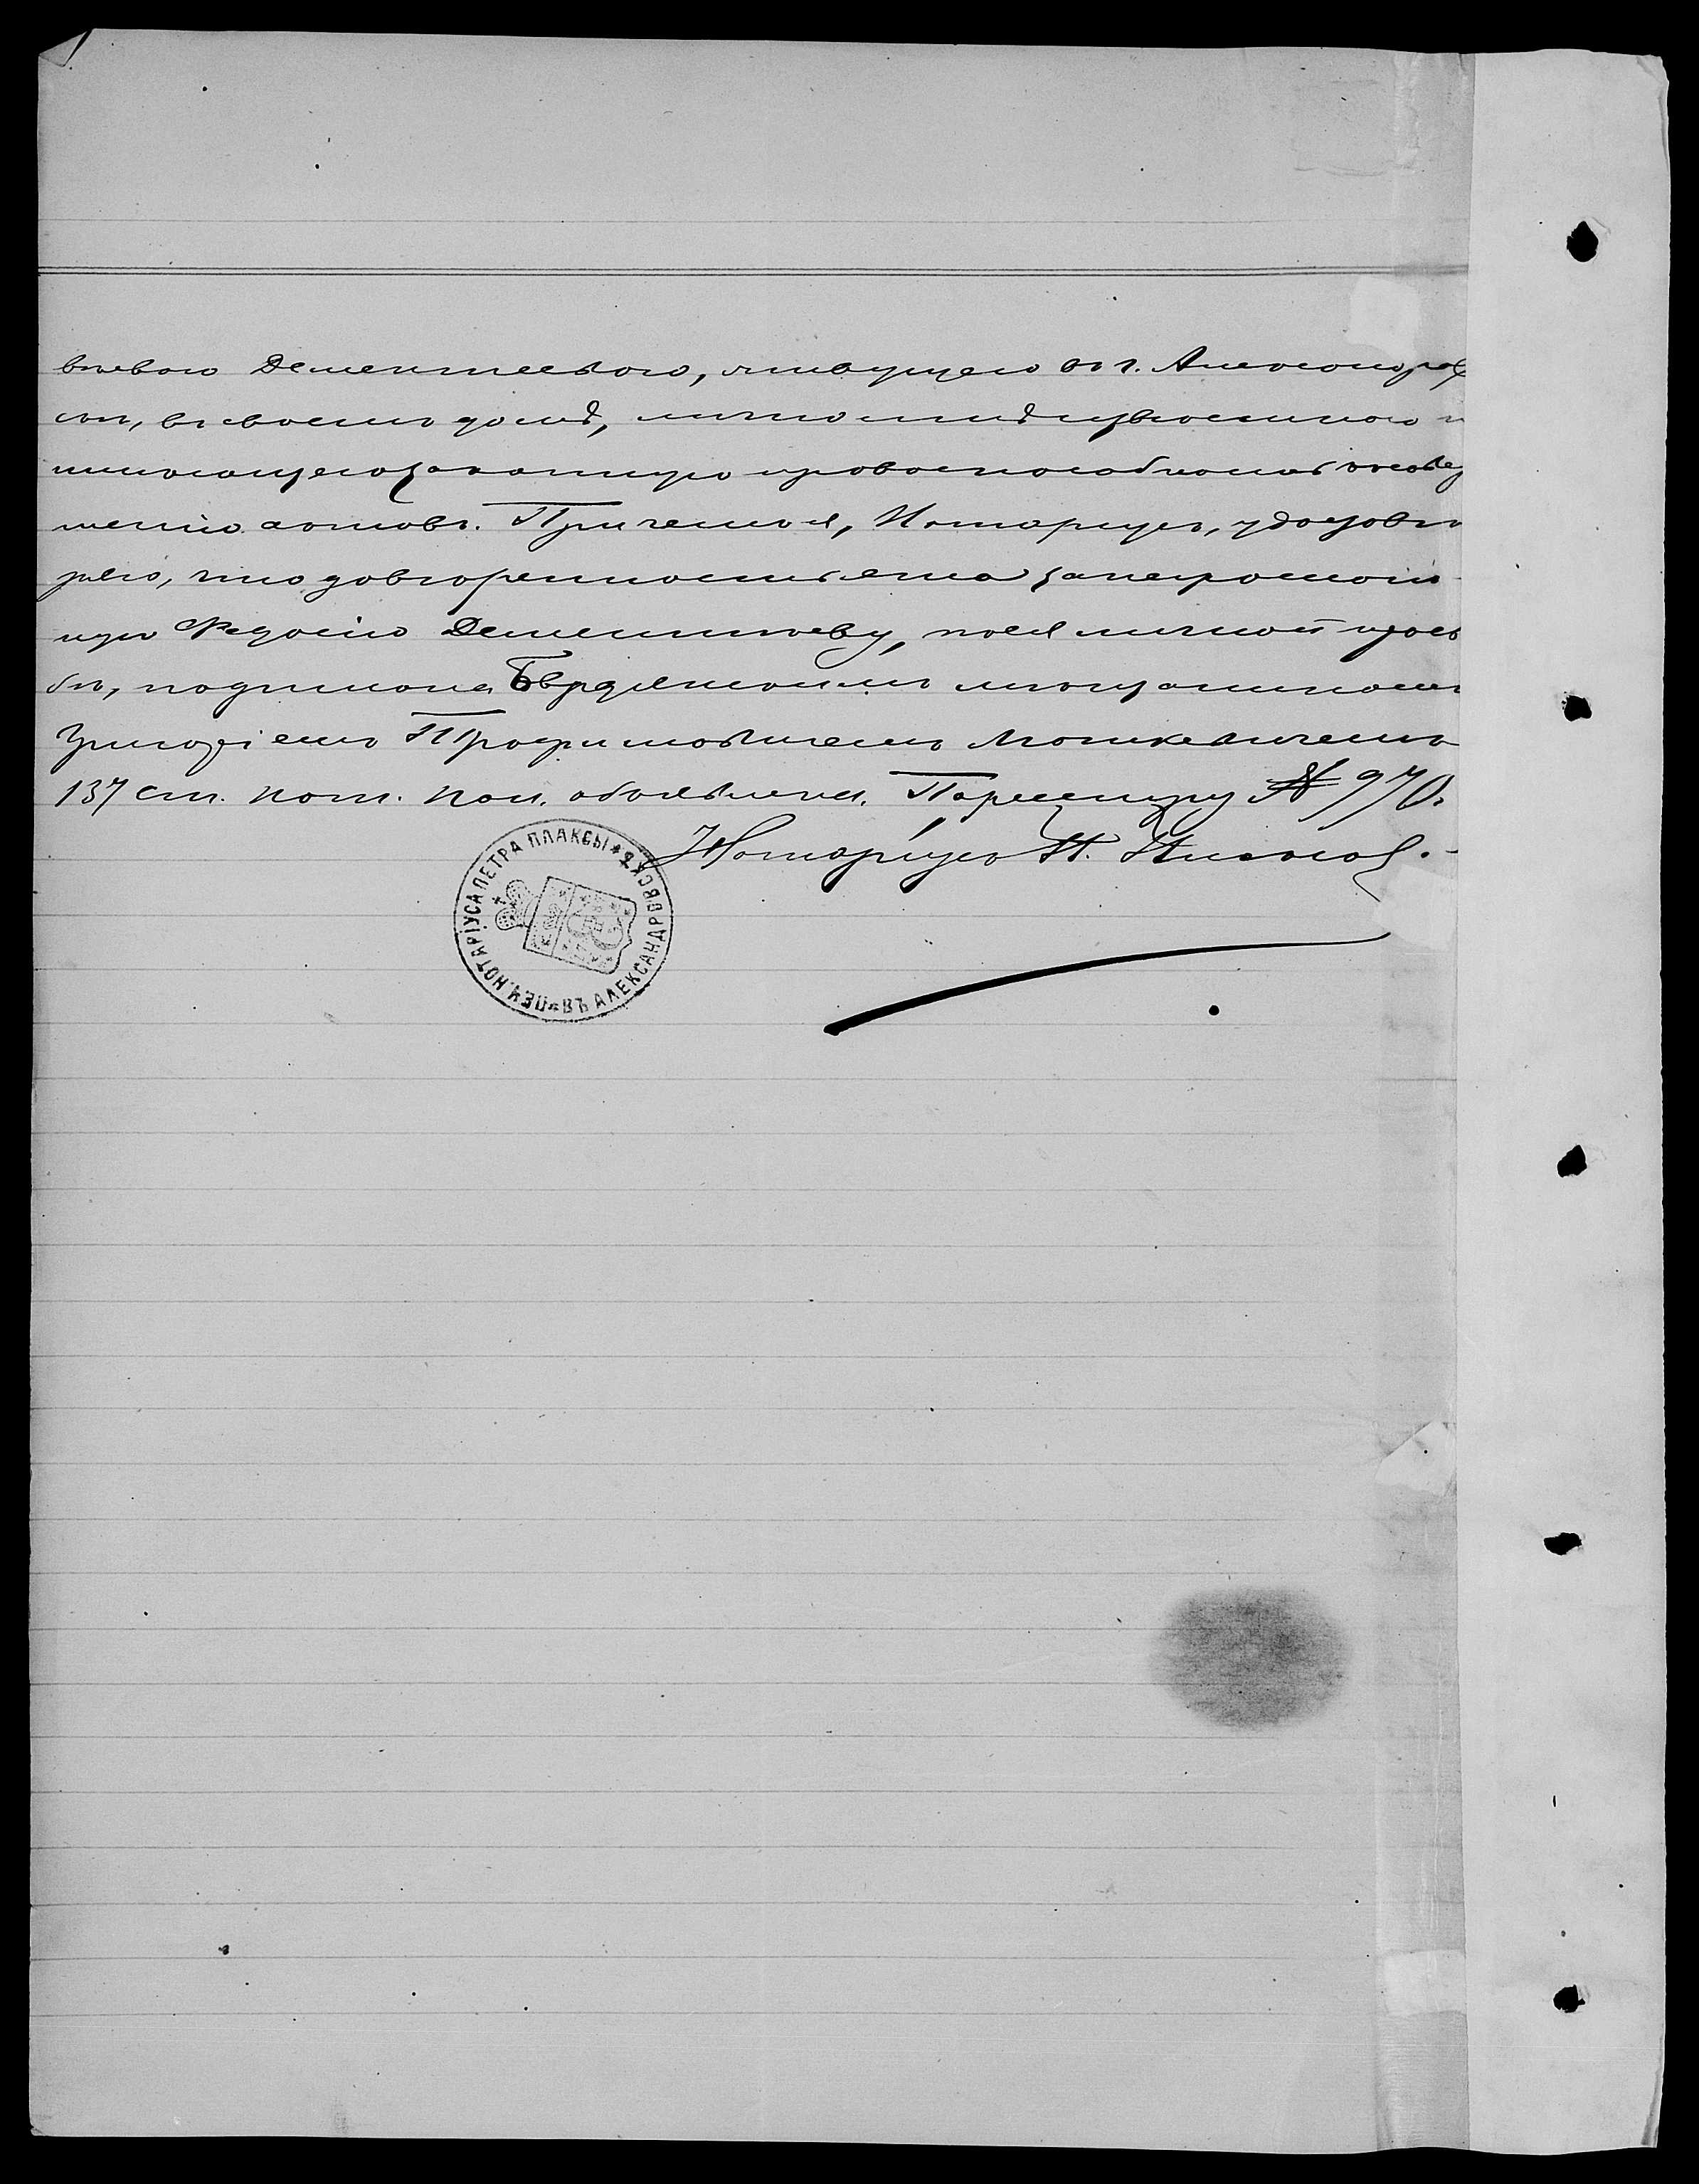 вьевого Дементьевого, живущего въ г. Александров
скѣ, въ своемъ домѣ, лично мнѣ извѣстного и
имѣющего законную правоспособность къ совер
шенію актовъ. При чемъ я, Нотаріусъ, удостовѣ
ряю, что довѣренность эта за неграмотн
ую Федосію Дементьеву, по ея личной прось
бѣ, подписана Бердянскимъ мѣщаниномъ
Григоріемъ Трофимовичемъ
137 ст. Нот. Пол. объявлена. По реестру № 970.
Нотаріусъ П. Плакса.
ПЕЧ. НОТАРІУСА ПЕТРА ПЛАКСЫ * ВЪ АЛЕКСАНДРОВСКѢ *